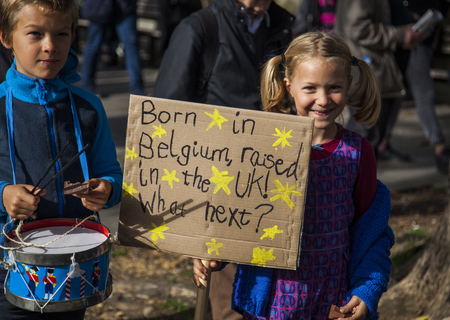 Born in
Belgium, raised
in the UK!
What next?